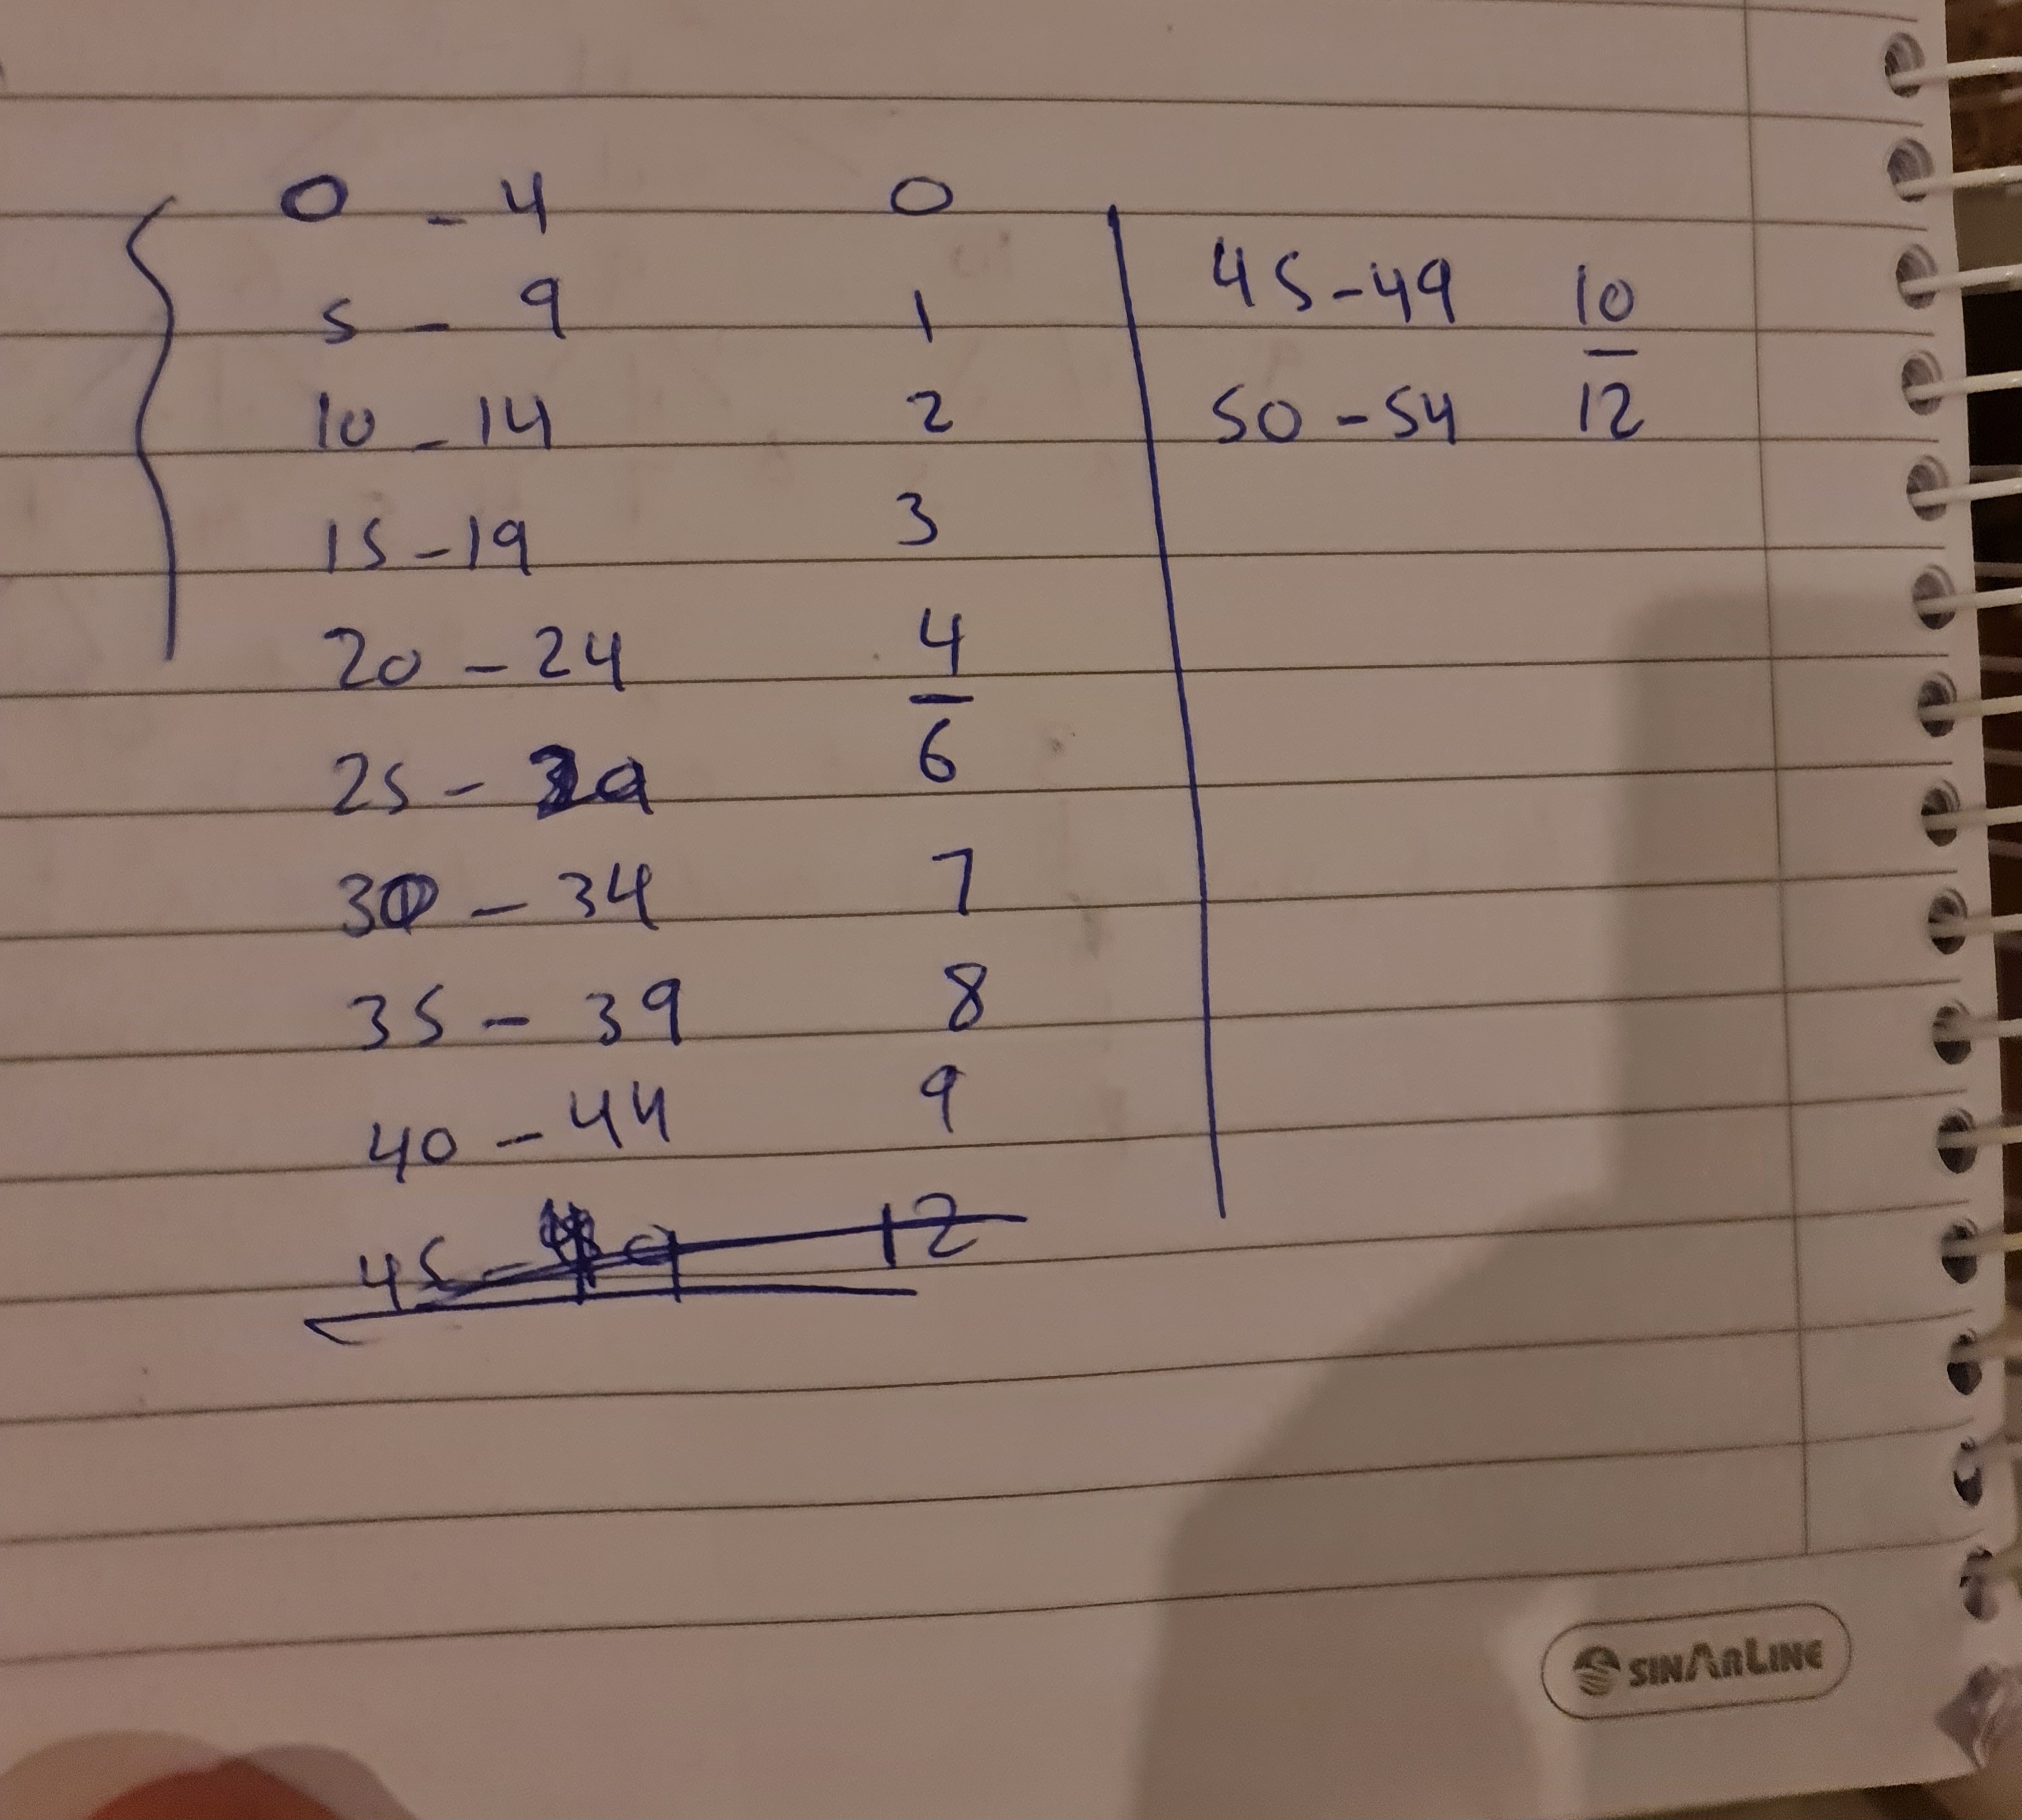 0 - 4 0
5 - 9 1
10 - 14 2
15 - 19 3
20 - 24 4
25 - 29 6
30 - 34 7
35 - 39 8
40 - 44 9
45 - 49 12
45 - 49 10
50 - 54 12
SINARLINE